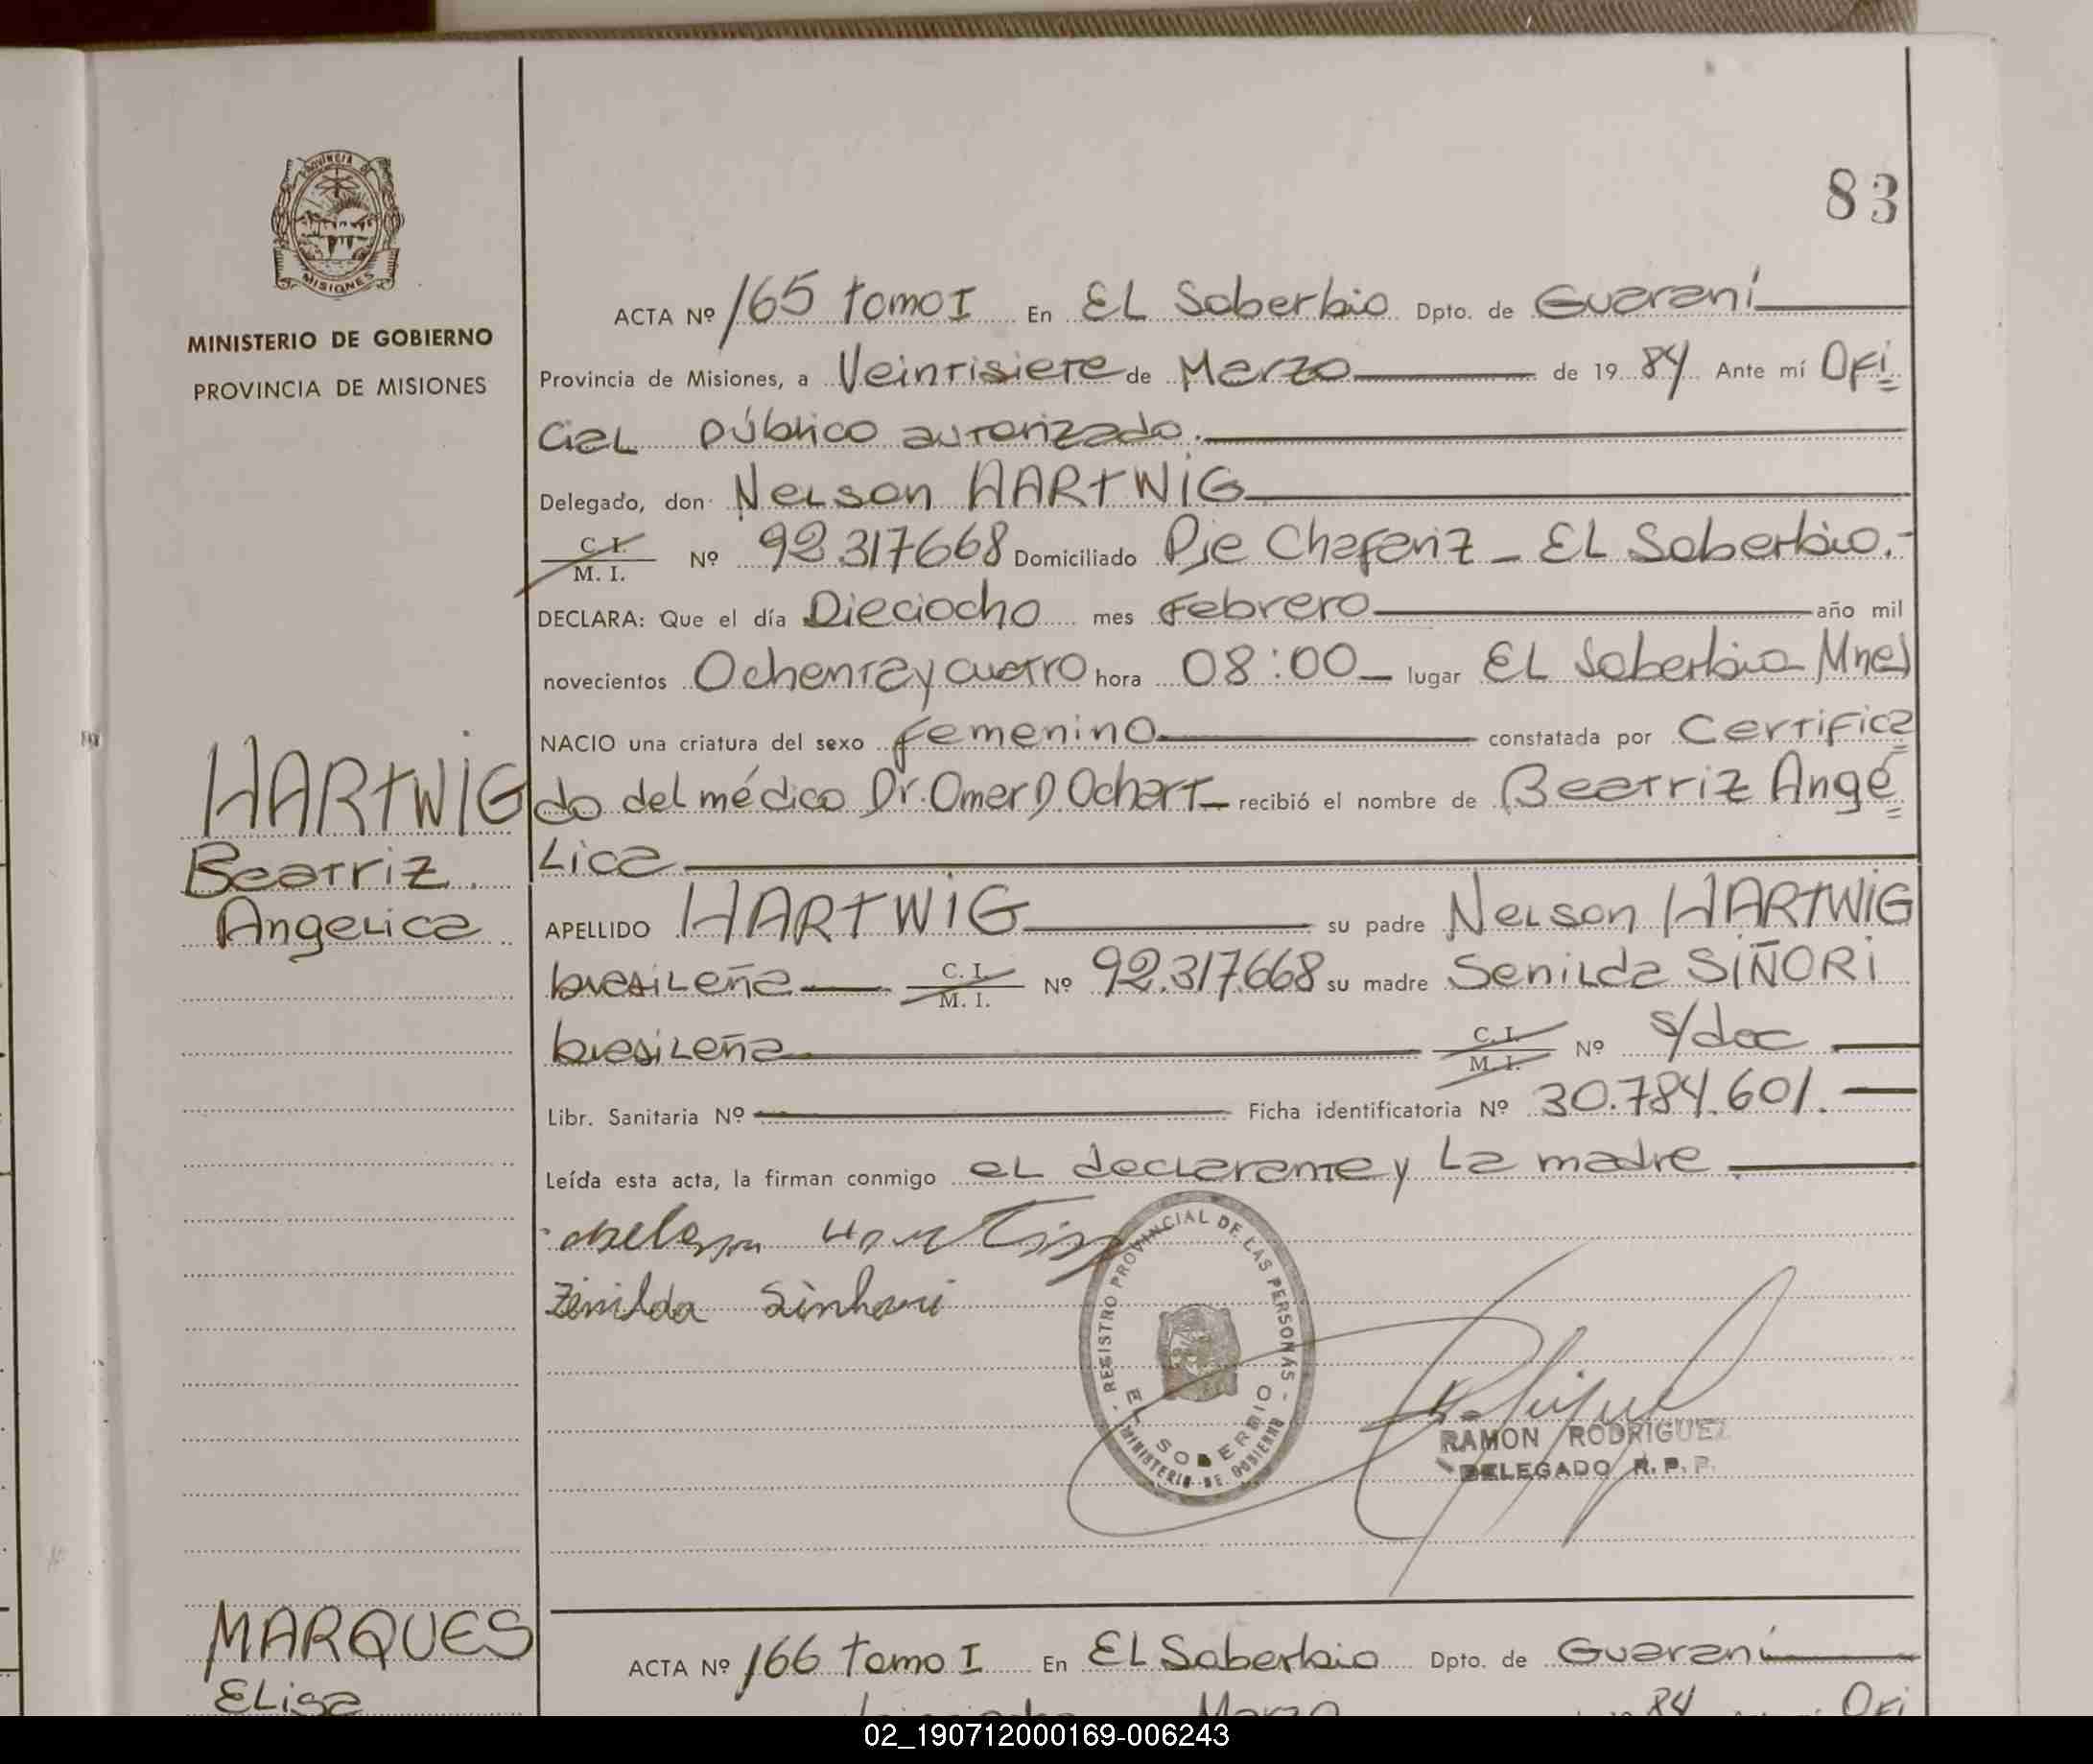 83
PROVINCIA DE
MISIONES
MINISTERIO DE GOBIERNO
PROVINCIA DE MISIONES
ACTA Nº 165 tomo I En EL Soberbio Dpto. de Guaraní
Provincia de Misiones, a Veintisiete de Marzo de 19 84 Ante mí Ofi
cial público autorizado.
Delegado, don Nelson HARTWIG
C. I. / M. I. Nº 92.317668 Domiciliado Pje Chafariz - EL Soberbio.-
DECLARA: Que el día Dieciocho mes Febrero año mil
novecientos Ochenta y cuatro hora 08:00 lugar EL Soberbio Mnes
NACIO una criatura del sexo femenino constatada por Certifica
do del médico Dr. Omer D Ochart recibió el nombre de Beatriz Angé
Lica
HARTWIG
Beatriz
Angelica
APELLIDO HARTWIG su padre Nelson HARTWIG
brasileña C. I. / M. I. Nº 92.317.668 su madre Senilda SIÑORI
brasileña C. I. / M. I. Nº s/doc
Libr. Sanitaria Nº Ficha identificatoria Nº 30.784.601.
Leída esta acta, la firman conmigo el declarante y La madre
Nelson Hartwig
Zenilda Sinhori
- REGISTRO PROVINCIAL DE LAS PERSONAS -
EL SOBERBIO
MINISTERIO DE GOBIERNO
RAMON RODRIGUEZ
DELEGADO R. P. P.
MARQUES
Elisa
ACTA Nº 166 tomo I En EL Soberbio Dpto. de Guaraní
Marzo 84 Ofi
02_190712000169-006243